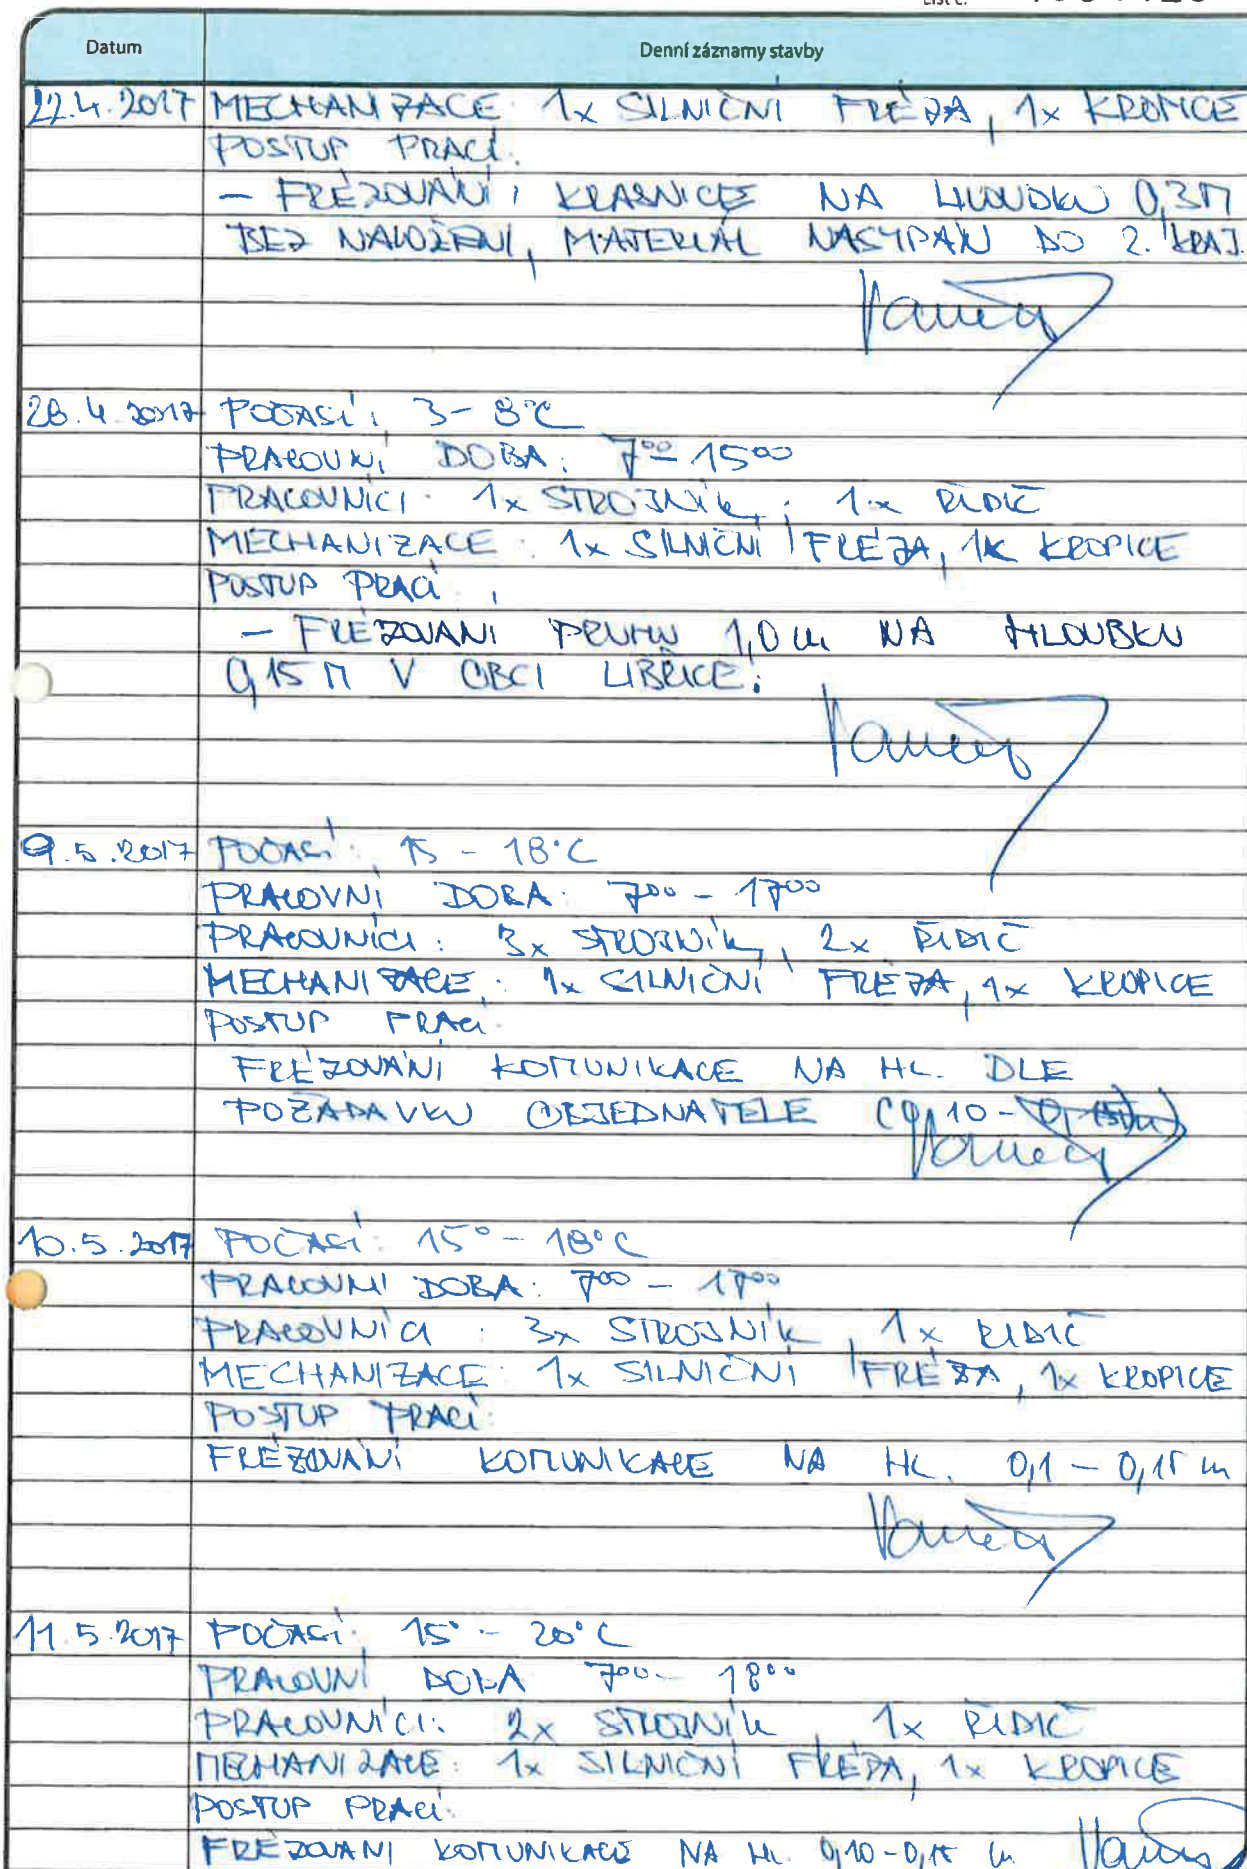 Datum
Denní záznamy stavby
22.4.2017 MECHANIZACE: 1x SILNIČNÍ FRÉZA, 1x KROPICE
POSTUP PRACÍ:
- FRÉZOVÁNÍ KRAJNICE NA HLOUBKU 0,3M
BEZ NALOŽENÍ, MATERIÁL NASYPÁN DO 2. KRAJ.
28.4.2017 POČASÍ: 3-8°C
PRACOVNÍ DOBA: 7⁰⁰-15⁰⁰
PRACOVNÍCI: 1x STROJNÍK, 1x ŘIDIČ
MECHANIZACE: 1x SILNIČNÍ FRÉZA, 1x KROPICE
POSTUP PRACÍ:
- FRÉZOVÁNÍ PRUHU 1,0 m NA HLOUBKU
0,15 M V OBCI LIBŘICE.
9.5.2017 POČASÍ: 15 - 18°C
PRACOVNÍ DOBA: 7⁰⁰ - 17⁰⁰
PRACOVNÍCI: 3x STROJNÍK, 2x ŘIDIČ
MECHANIZACE: 1x SILNIČNÍ FRÉZA, 1x KROPICE
POSTUP PRACÍ:
FRÉZOVÁNÍ KOMUNIKACE NA HL. DLE
POŽADAVKU OBJEDNATELE (0,10 - 0,15m)
10.5.2017 POČASÍ: 15° - 18°C
PRACOVNÍ DOBA: 7⁰⁰ - 17⁰⁰
PRACOVNÍCI: 3x STROJNÍK, 1x ŘIDIČ
MECHANIZACE: 1x SILNIČNÍ FRÉZA, 1x KROPICE
POSTUP PRACÍ:
FRÉZOVÁNÍ KOMUNIKACE NA HL. 0,1 - 0,15 m
11.5.2017 POČASÍ: 15° - 20°C
PRACOVNÍ DOBA 7⁰⁰ - 18⁰⁰
PRACOVNÍCI: 2x STROJNÍK, 1x ŘIDIČ
MECHANIZACE: 1x SILNIČNÍ FRÉZA, 1x KROPICE
POSTUP PRACÍ:
FRÉZOVÁNÍ KOMUNIKACE NA HL. 0,10-0,15 m